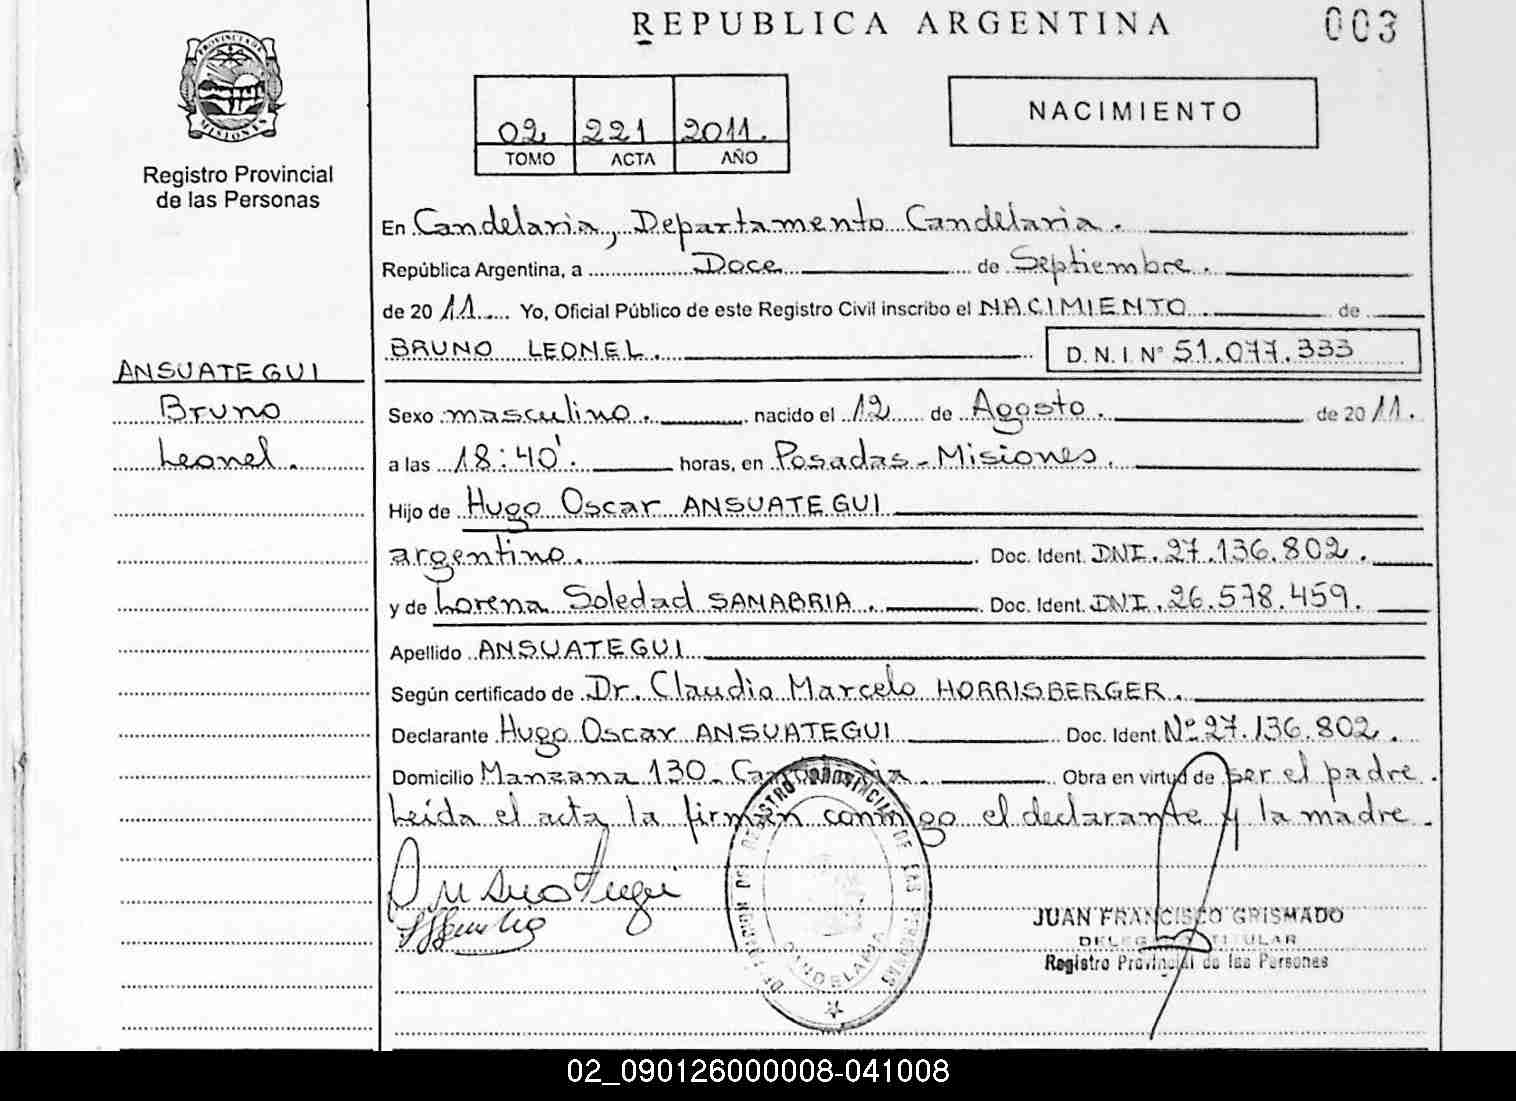 REPUBLICA ARGENTINA
003
PROVINCIA DE
MISIONES
Registro Provincial
de las Personas
02 221 2011.
TOMO ACTA AÑO
NACIMIENTO
En Candelaria, Departamento Candelaria.
República Argentina, a Doce de Septiembre.
de 2011 Yo, Oficial Público de este Registro Civil inscribo el NACIMIENTO de
BRUNO LEONEL. D.N.I. Nº 51.077.333
ANSUATEGUI
Bruno
Leonel.
Sexo masculino. nacido el 12 de Agosto. de 2011.
a las 18:40'. horas, en Posadas - Misiones.
Hijo de Hugo Oscar ANSUATEGUI
argentino. Doc. Ident. DNI. 27.136.802.
y de Lorena Soledad SANABRIA. Doc. Ident. DNI. 26.578.459.
Apellido ANSUATEGUI
Según certificado de Dr. Claudio Marcelo HORRISBERGER.
Declarante Hugo Oscar ANSUATEGUI Doc. Ident Nº 27.136.802.
Domicilio Manzana 130 - Candelaria. Obra en virtud de ser el padre.
Leída el acta la firman conmigo el declarante y la madre.
Ansuategui
REGISTRO PROVINCIAL DE LAS PERSONAS
CANDELARIA
JUAN FRANCISCO GRISMADO
DELEGADO TITULAR
Registro Provincial de las Personas
02_090126000008-041008